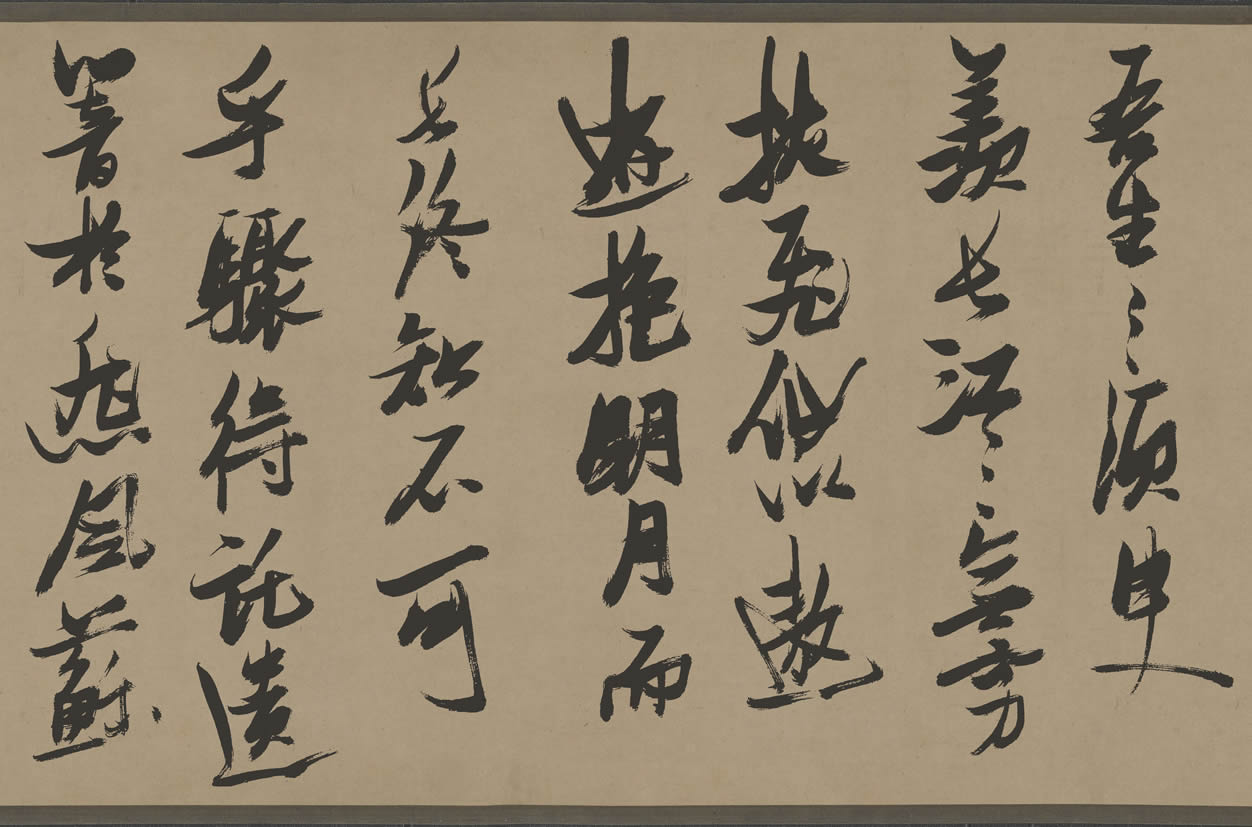 吾生之須臾
羨長江之無窮
挾飛仙以遨
遊抱明月而
長終知不可
乎驟得託遺
響於悲風蘇